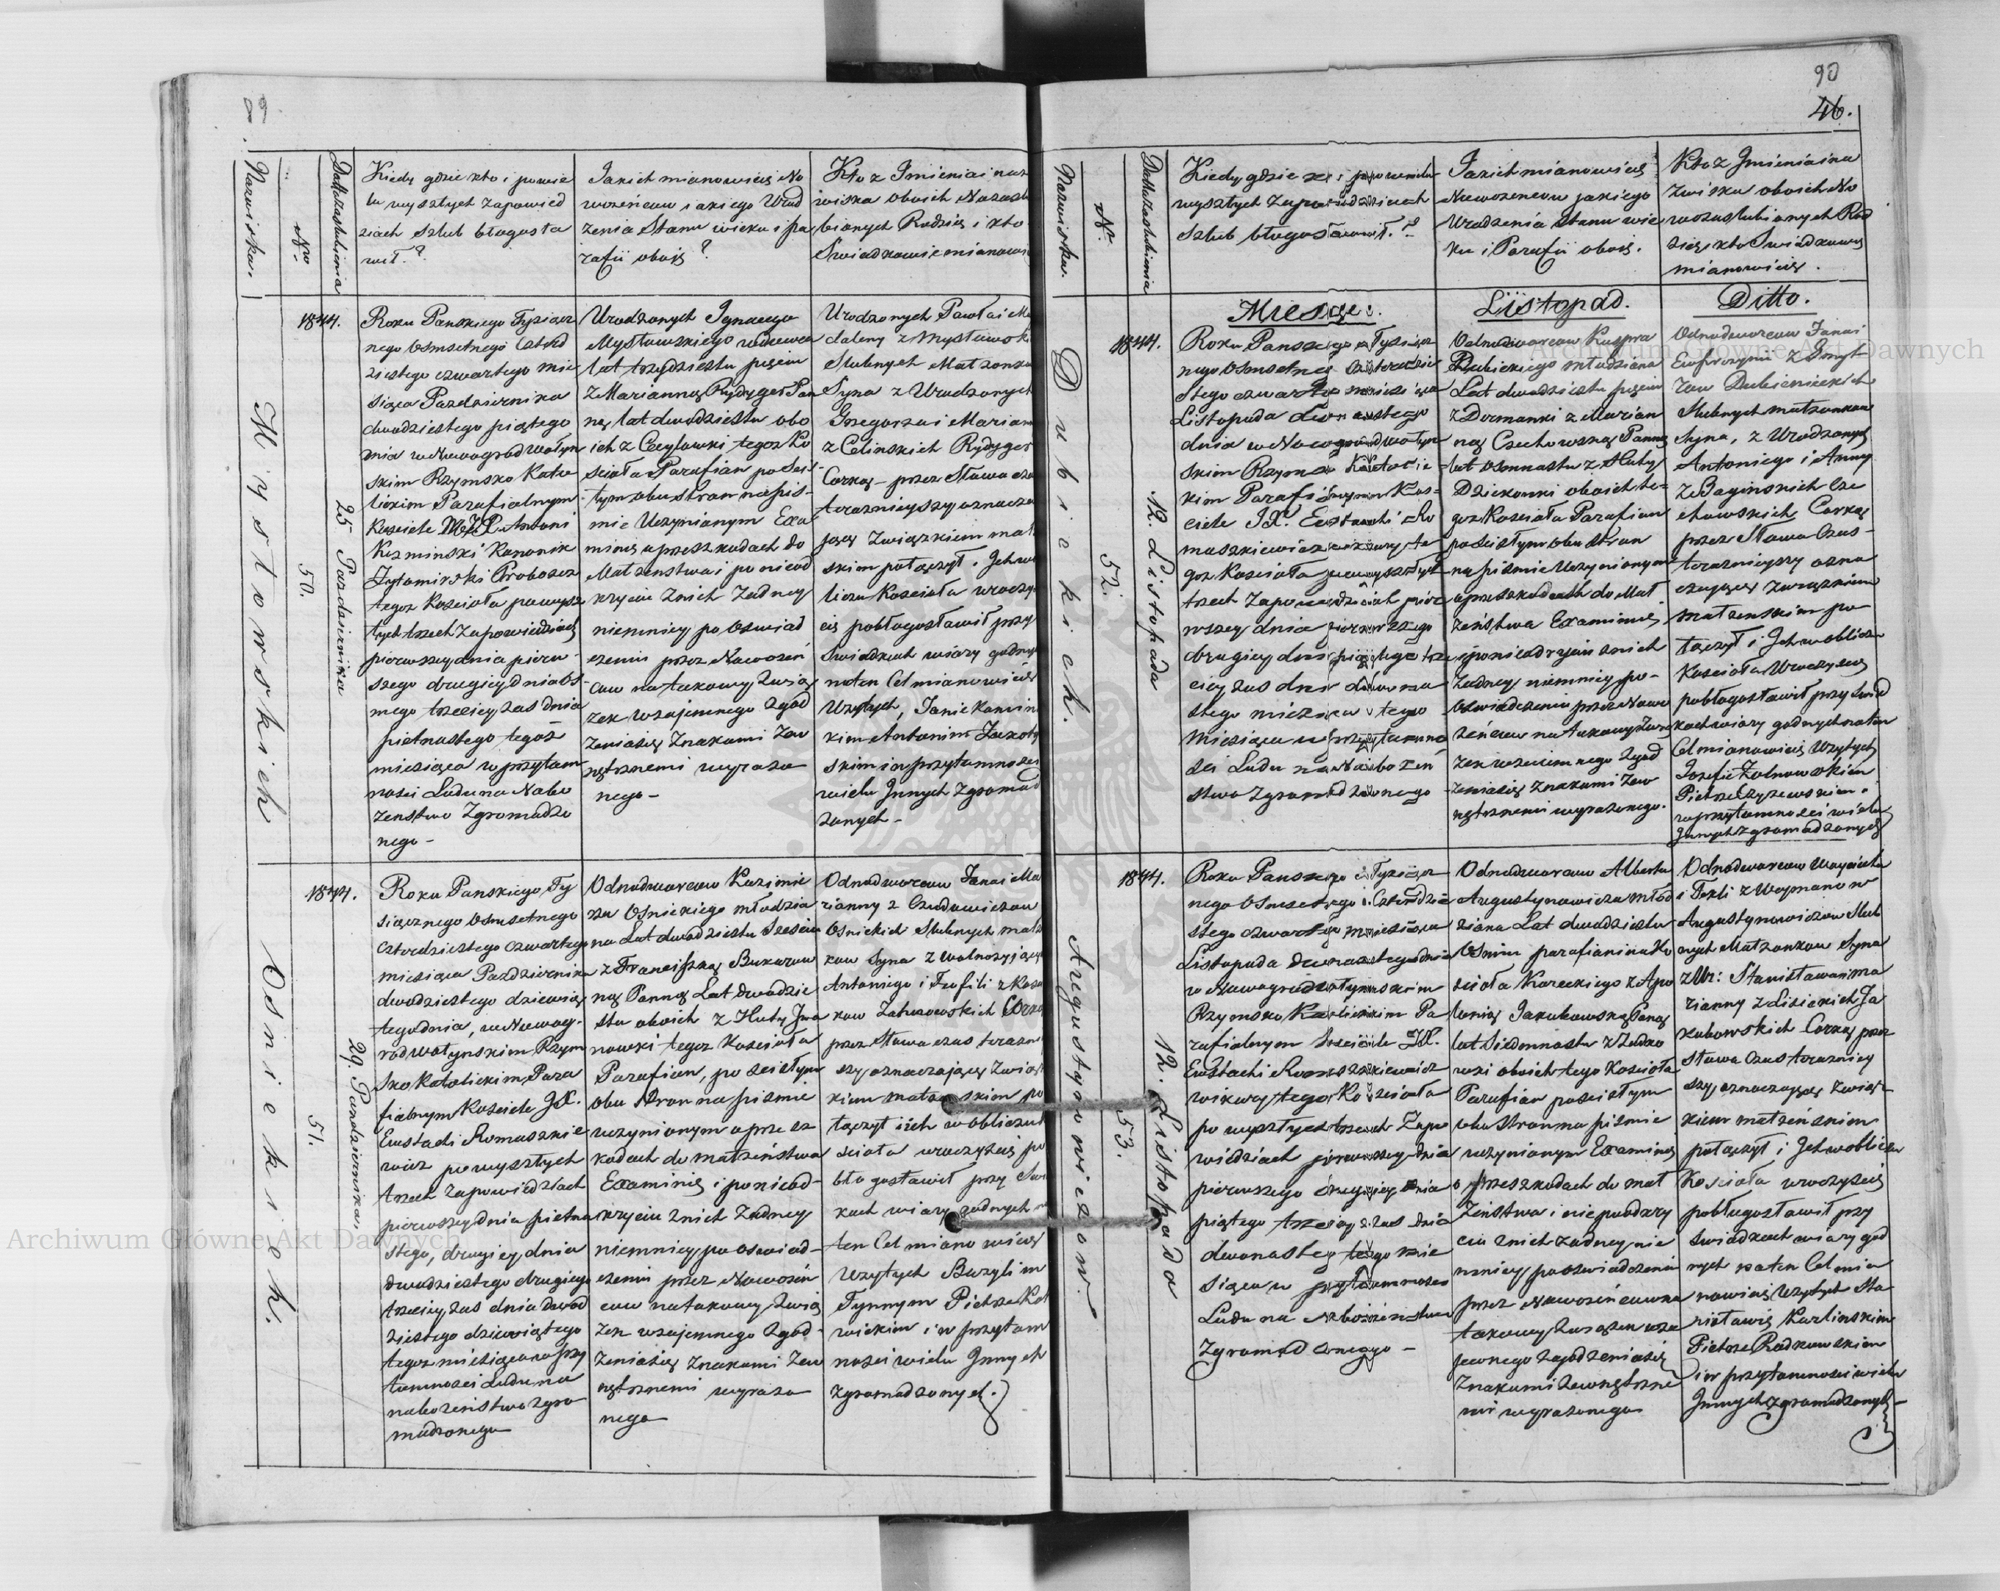 90
46.
Nazwiska.
Nro
Datta zaslubienia
Kiedy gdzie kto i po wie
lu wyszłych zapowied
ziach szlub błogosła
wił. ?
Jakich mianowicie No
wożeńcow i akiego Urod
zenia Stanu wieku i pa
rafii oboje ?
Kto z Imienia i naz
wiska oboich Nozaszlu
bionych Rodzie i kto
Swiadkowie mianowi
1844.
50.
25 Pazdziernika
Roku Panskiego Tysiącz
nego Osmsetnego Cztrd
ziestego czwartego mie
siąca Pazdziernika
dwudziestego piątego
dnia w Nowogrodwołyn
skim Rzymsko Kato
lickim Parafialnym
Kościele Antoni
Kozminski Kanonik
Zytomirski Proboszcz
tegoz Kościoła po wysz
łych trzech zapowiedziach
pierwszey dnia pierw-
szego drugiey dnia Os-
mego trzeciey zas dnia
pietnastego tegoż
miesiąca w przytam
ności Ludu na Nabo
żenstwo zgromadzo
nego -
Urodzonych Ignacego
Mysłowskiego wdowca
Lat trzydziestu pięciu
z Marianną Rydyger Pan
ną lat dwudziestu obo
ich z Cecylowki tegoz Ko
ścioła Parafian po ści-
słym obu stron na piś-
mie Uczynianym Exa
minie o przeszkodach do
Małzenstwa i po nieod
kryciu z nich żadney
niemniey po Oswiad
czeniu przez Nowożeń
cow na takowy Zwią
zek wzajemnego zgod
zenia się Znakami zew
nętrznemi wyrażo
nego -
Urodzonych Pawła i Ma
daleny z Mysławsk
Slubnych Małzonko
Syna z Urodzonych
Grzegorza i Mariann
z Celinskich Rydyger
Corką - przez Słowa cza
teraznieyszy oznacza
jącę Związkiem mał
skim połączył. Ich w o
liczu Kościoła uroczyś
cie pobłogosławił przy
Swiadkach wiary godny
na ten Cel mianowicie
Użytych, Janie Kamin
kim Antonim Zakoty
skim i w przytamnosci
wielu Innych Zgromad
zonych -
Mysłowskich
1844.
51.
29. Pazdziernika.
Osnickich.
Roku Panskiego Ty
siącznego Osmsetnego
Cztrdziestego czwartego
miesiąca Pazdziernika
dwudziestego dziewią
tego dnia, w Nowog-
rodwołynskim Rzym
sko Katolickim Para
fialnym Kościele JX.
Eustachi Romaszkie
wicz po wyszłych
trzech zapowiedziach
pierwszey dnia pietna
stego, drugiey dnia
dwudziestego drugiego
trzeciey zas dnia dwud
ziestego dziewiątego
tegoz miesiąca w przy
tamnosci Ludu na
nabożenstwo zgro
madzonego
Odnodworcow Kazimie
rza Osnickiego młodzia
na Lat dwudziestu Sześciu
z Franciszką Bukarow
ną Panną Lat dwudzie
stu oboich z Huty Iwa
nowki tegoz Kościoła
Parafian, po ścisłym
obu Stron na piśmie
uczynionym o prze sz
kodach do małżeństwa
Examinie i po nieod-
kryciu z nich żadney
niemniey po oswiad-
czeniu przez Nowożeń
cow na takowy Zwią
zek wzajemnego zgod-
zenia się Znakami Zew
nętrznemi wyrażo
nego
Odnodworcow Jana i Ma
rianny z Czudowiczow
Osnickich Slubnych małż
kow Syna z wolnożyjący
Antoniego i Teofili z Koza
kow Zaturowskich Corką
przez Słowa czas terazni
szy oznaczający Związ
kiem małżenskim po
łączył i ich w obliczu K
ścioła uroczyście po
błogosławił przy Swi
kach wiary godnych n
ten Cel mianowicie
Użytych Bazylim
Tynnym Piotrze Kot
wickim i w przytam
nosci wielu Innych
zgromadzonych.
Nazwiska.
Nr.
Datta zaslubienia
Kiedy gdzie
wyszłych Zapowiedziach
Szlub błogosławił. ?
Jakich mianowicie
Nowożeńcow jakiego
Urodzenia Stanu wie
ku i Parafii oboie.
Kto z Imienia i na
zwiska oboich No
wozaslubionych Rod
ziey kto Swiadkowie
mianowicie.
Miesiąc.
Listopad.
Ditto.
1844.
52.
12. Listopada
Dubickich.
Roku Panskiego Tysiącz
nego Osmsetnego Cztrdzie
stego czwartego miesiąca
Listopada dwunastego
dnia w Nowogrodwołyn
skim Rzymsko Katolic-
kim Parafialnym Koś-
ciele JX. Eustachi Ro
maszkiewicz wikary te
goz Kościoła po wyszłych
trzech Zapowiedziach pier
wszey dnia pierwszego
drugiey dnia piątego trze
ciey zas dnia dwuna
stego miesiąca tego
Miesiąca w przytamno
ści Ludu na Nabożeń
stwo Zgromadzonego -
Odnodworcow Kaspra
Dubickiego młodziana
Lat dwudziestu pięciu
z Dermanki z Marian
ną Czechowską Panną
lat Osmnastu z Huty
Dziekanki oboich te-
goz Kościoła Parafian
po ścisłym obu Stron
na piśmie Uczynionym
o przeszkodach do Mał
żeństwa Examinie
i po nieodkryciu z nich
żadney niemniey po-
Oswiadczeniu przez Nowo
żeńcow na takowy Zwią
zek wzajemnego zgod
zenia się znakami zew
nętrznemi wyrażonego.
Odnodworcow Jana i
Eufrozyny z Dmyt-
row Dubienickich
Slubnych małzonkow
Syna, z Urodzonych
Antoniego i Anny
z Baginskich Cze
chowskich Corką
przez Słowa Czas-
teraznieyszy ozna
czający Związkiem
małzenskim po
łączył i Ich w obliczu
Kościoła Uroczyście
pobłogosławił przy Swiad
kach wiary godnych na ten
Cel mianowicie Użytych
Jozefie Żolnowskim
Piotrze Czyzewskim.
w przytamności wielu
Innych zgromadzonych
1844.
53.
12. Listopada
Augustynowiczow.
Roku Panskiego Tysiącz
nego Osmsetnego Cztrdzie
stego czwartego miesiąca
Listopada dwunastego dnia
w Nowogrodwołynskim
Rzymsko Katolickim Pa
rafialnym Kościele JX.
Eustachi Romaszkiewicz
wikary tego Kościoła
po wyszłych trzech Zapo
wiedziach pierwszey dnia
pierwszego drugiey dnia
piątego trzeciey zas dnia
dwunastego tego mie
siąca w przytamnosci
Ludu na nabożeństwo
Zgromadzonego -
Odnodworcow Alberta
Augustynowicza młod
ziana Lat dwudziestu
Osmiu parafianina Ko
ścioła Koreckiego z Apo
lonią Jakubowską Panną
lat Siedmnastu
oboich tego Kościoła
Parafian po ścisłym
obu Stron na piśmie
uczynionym Examinie
o przeszkodach do mał
żeństwa i nie poodkry
ciu z nich żadney nie
mniey po oswiadczeniu
przez Nowożeńcow na
takowy Związek wza
jemnego zgodzenia się
Znakami Zewnętrzne
mi wyrażonego
Odnodworcow Woyciecha
i Tekli z Woymanow
Augustynowiczow Slub
nych Małzonkow Syna
z Ur: Stanisława i ma
rianny z Lisieckich Ja
kubowskich Corką przez
słowa Czas terazniey
szy oznaczający Zwiąś-
kiem małżeńskim
połączył i Ich w obliczu
Kościoła uroczyście
pobłogosławił przy
Swiadkach wiary god
nych na ten Cel mia
nowicie Użytych Sta
nisławie Karlinskim
Piotrze Radkowskim
i w przytamnosci wielu
Innych zgromadzonych
Archiwum Główne Akt Dawnych
Archiwum Główne Akt Dawnych